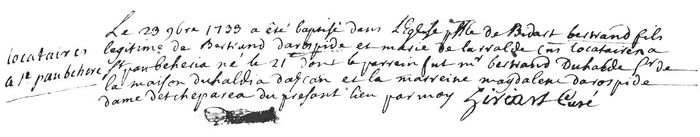 Le 23 9bre 1733 a été baptisé dans L'Eglise plle de Bidart bertrand fils
legitime de Bertrand darospide et marie de larralde Cns locataires a
locataires
a st paubehere
St paubeheria né le 21e dont le perrein fut mr bertrand Duhalde Sr de
la maison duhaldia dascan et la marreine magdalene darospide
dame detcheparea du present lieu par moy Hiriart Curé